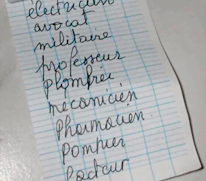 électricien
avocat
militaire
professeur
plombier
mécanicien
pharmacien
pompier
facteur